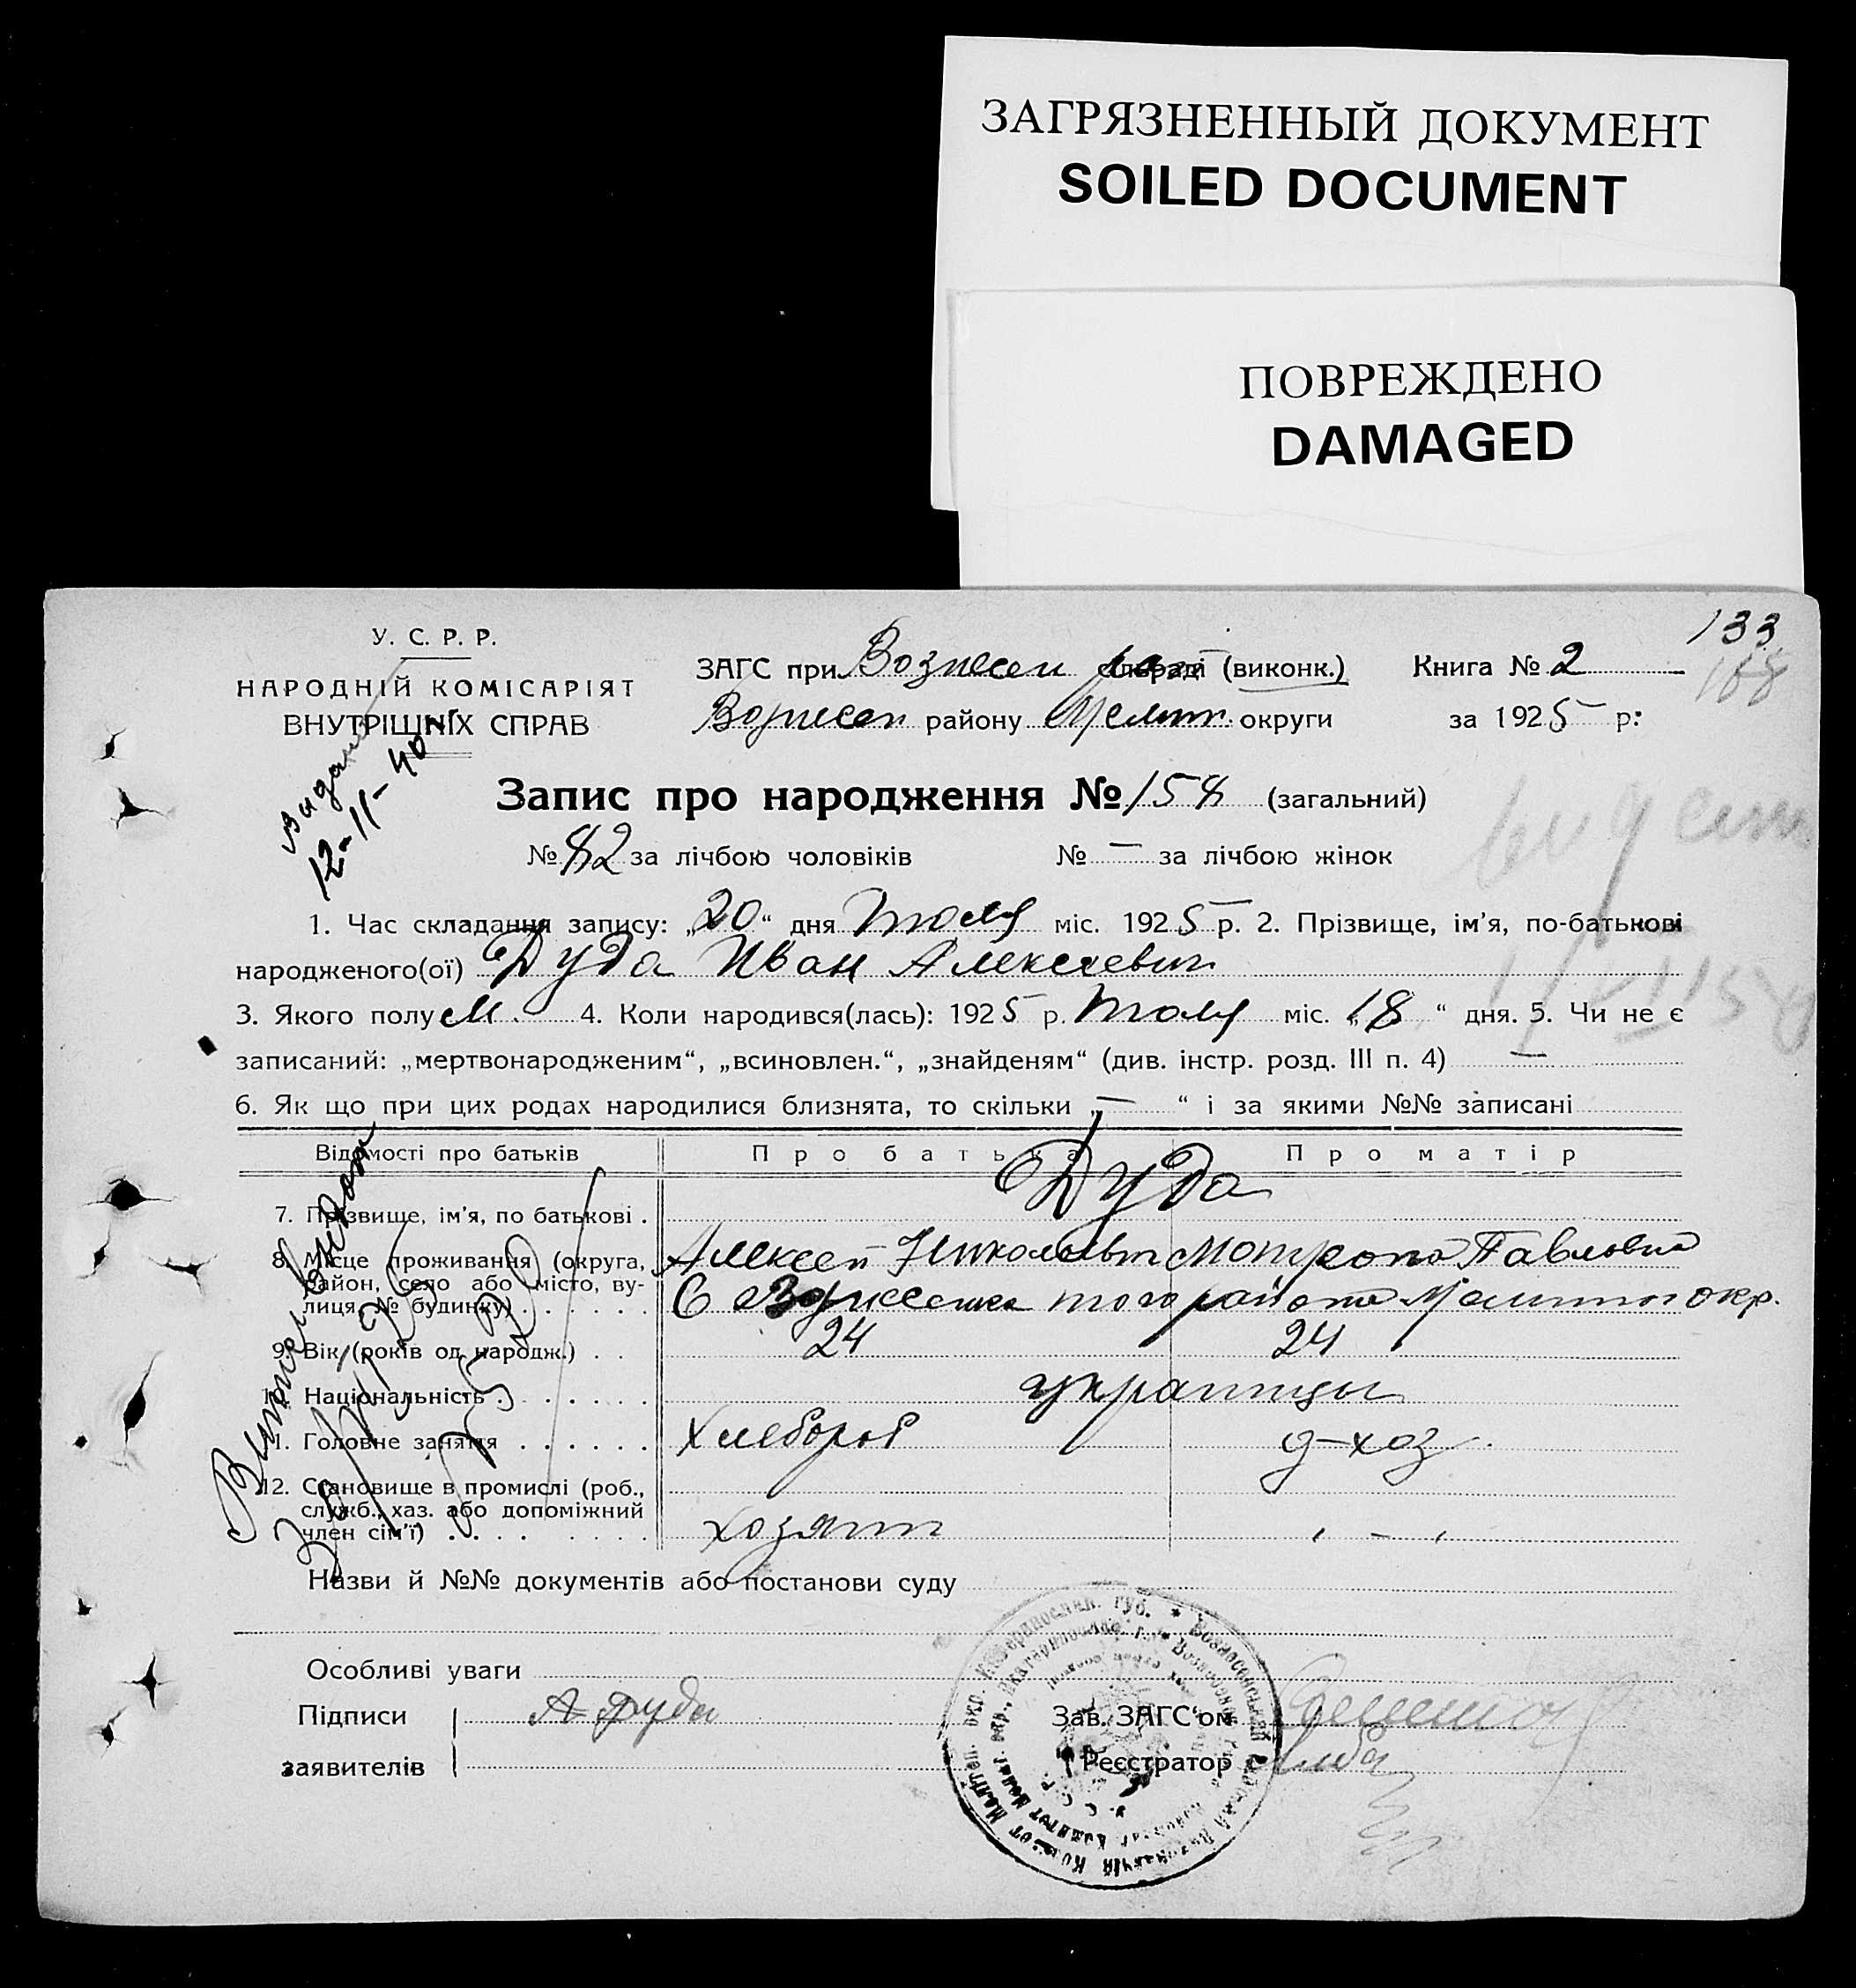 ЗАГРЯЗНЕННЫЙ ДОКУМЕНТ
SOILED DOCUMENT
ПОВРЕЖДЕНО
DAMAGED
133
168
У. С. Р. Р.
НАРОДНІЙ КОМІСАРІЯТ
ВНУТРІШНІХ СПРАВ
ЗАГС при Вознесен (виконк.) Книга № 2
Вознесен району Мелит. округи за 1925 р.
12-11-40
Запис про народження № 158 (загальний)
№ 82 за лічбою чоловіків № — за лічбою жінок
1. Час складання запису: „20“ дня Июля міс. 1925 р. 2. Прізвище, ім'я, по-батькові
народженого(ої) Дуда Иван Алексеевич
3. Якого полу М. 4. Коли народився(лась): 1925 р. Июля міс. „18“ дня. 5. Чи не є
записаний: „мертвонародженим“, „всиновлен.“, „знайденям“ (див. інстр. розд. III п. 4) —
6. Як що при цих родах народилися близнята, то скільки „—“ і за якими №№ записані
Відомості про батьків Про батька Про матір
Дуда
7. Прізвище, ім'я, по батькові .
Алексей Николаевич Мотрона Павловна
8. Місце проживання (округа,
район, село або місто, ву-
лиця, № будинку) . . . . . .
С Вознесенка того района Мелитоп окр.
9. Вік (років од народж.) . . 24 24
Національність . . . . . . украинцы
11. Головне заняття . . . . . . Хлебороб д-хоз.
12. Становище в промислі (роб.,
служб., хаз. або допоміжний
член сім'ї) . . . . . . . . Хозяин „ — „
Назви й №№ документів або постанови суду
Особливі уваги
Підписи А Дуда Зав. ЗАГС'ом
заявителів Реєстратор